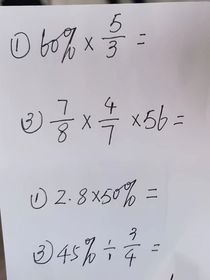 ① 60% × 5/3 =
③ 7/8 × 4/7 × 56 =
① 2.8×50% =
③ 45% ÷ 3/4 =